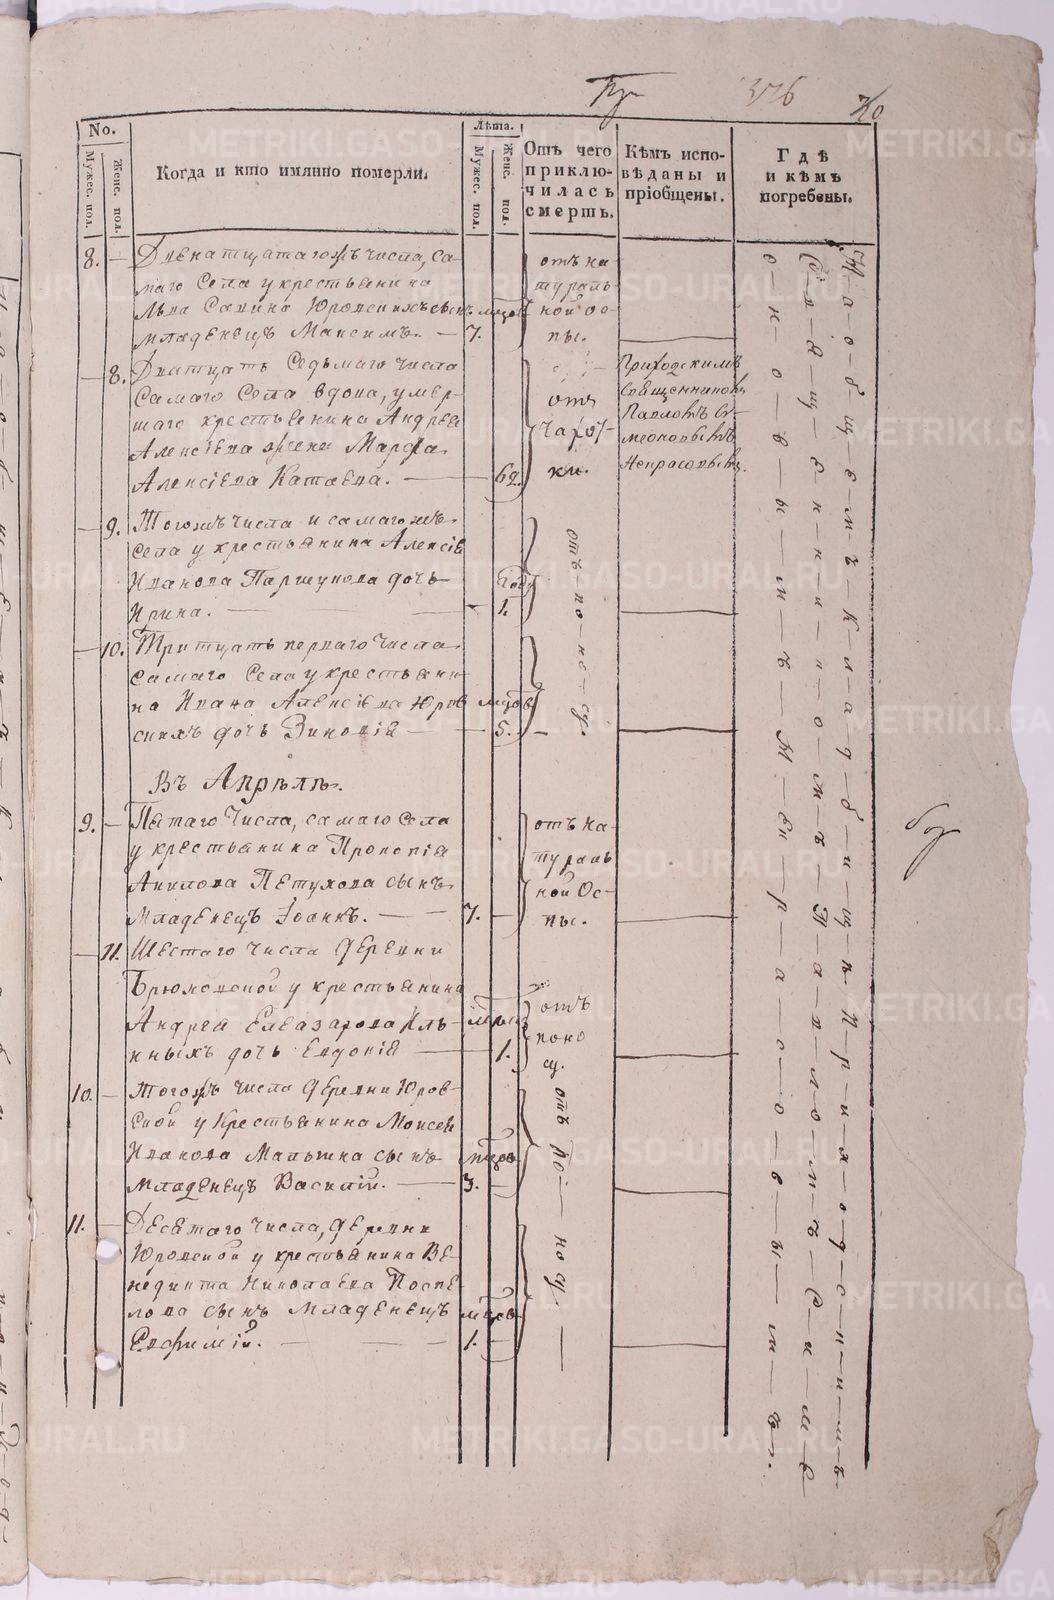 376
70
No.
Мужес. пол.
Женс. пол.
Когда и кто имянно померли.
Лѣта.
Мужес. пол.
Женс. пол.
Отъ чего
приклю-
чилась
смерть.
Кѣмъ испо-
вѣданы и
пріобщены.
Гдѣ
и кѣмъ
погребены.
8. — числа, са-
маго села у крестьянина
Льва Савина Юровскихъ сынъ
младенецъ Максимъ. — 7.
отъ на
тураль
ной ос-
пы.
— 8. Дватцать седьмаго числа
самаго села вдова, умер-
шаго крестьянина Андрея
Алексіева жена Марфа
Алексіева Катаева. — 62.
отъ
чахот-
ки.
Приходскимъ
священникомъ
Павломъ
Некрасовымъ.
— 9. Тогожъ числа и самагожъ
села у крестьянина Алексія
Иванова Паршукова дочь
Ирина. — 1.
отъ по-но-су.
— 10. Тритцать перваго числа
самаго села у крестьяни-
на Ивана Алексіева Юров
скихъ дочь Зиновія — 5.
Въ Апрѣлѣ.
9. — Пятаго числа, самаго села
у крестьянина Прокопія
Петухова сынъ
младенецъ Іоаннъ. — 7.
отъ на-
тураль
ной ос-
пы.
— 11. Шестаго числа деревни
у крестьянина
Андрея Елеазарова Иль-
иныхъ дочь Евдокія — 1.
отъ
поно
су.
10. — Тогожъ числа деревни Юров-
ской у крестьянина Моисея
Иванова сынъ
младенецъ Василій. — 3.
отъ по-носу.
11. — Десятаго числа, деревни
Юровской у крестьянина Ве-
недикта Николаева Поспе-
лова сынъ младенецъ
Евфимій. — 1.
На общемъ кладбищѣ Приходскимъ
Священникомъ Павломъ
Некрасовымъ.
METRIKI.GASO-URAL.RU